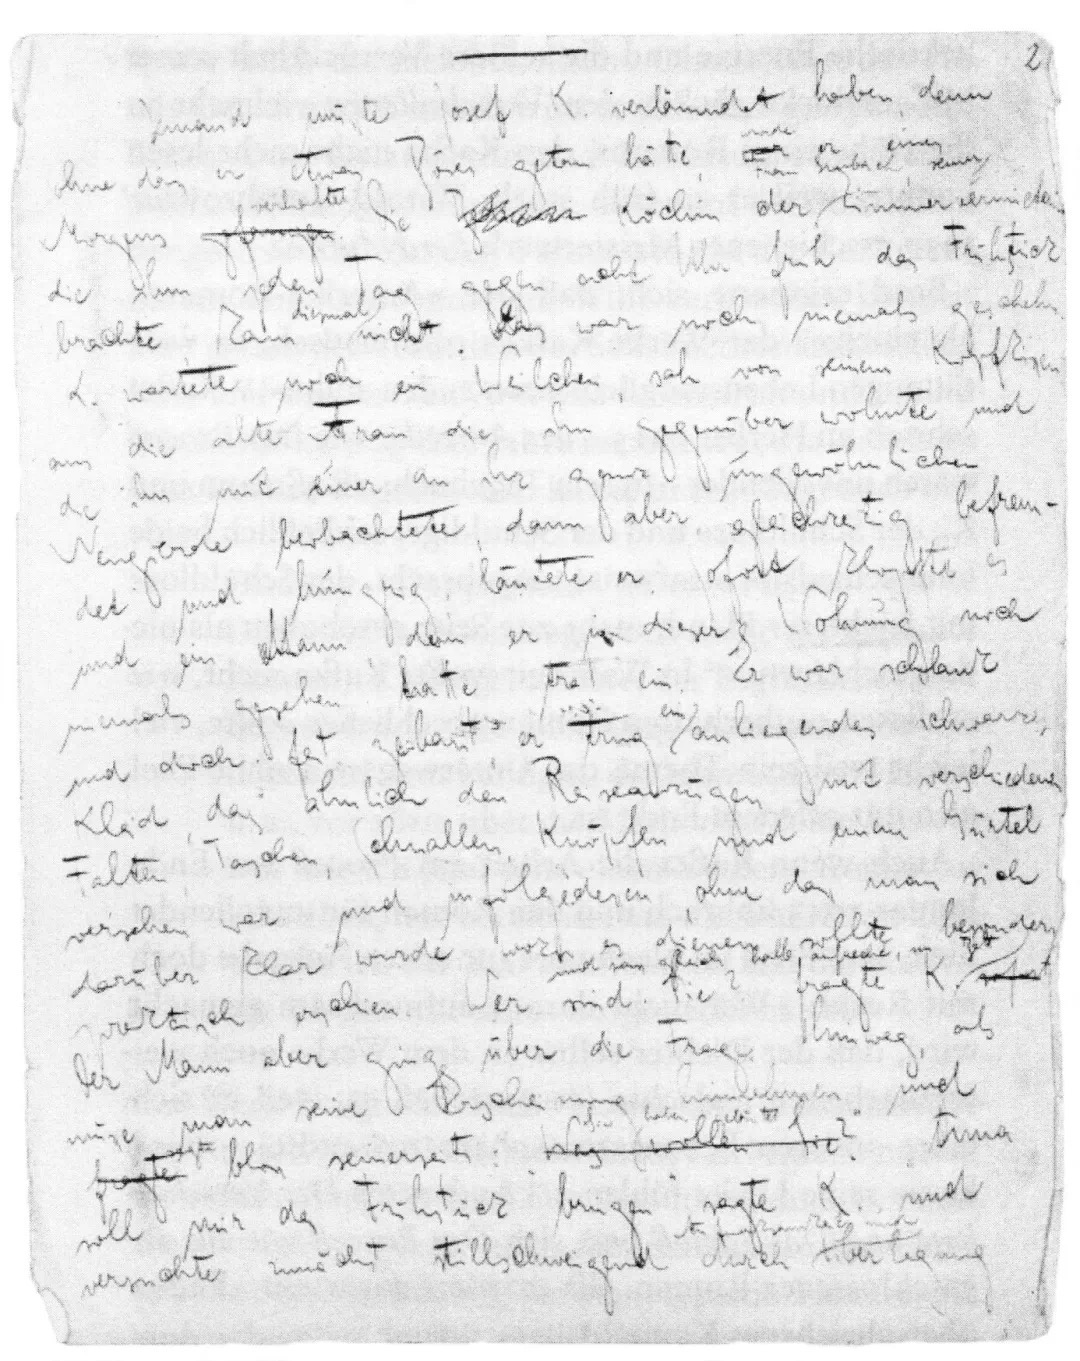 2
Jemand mußte Josef K. verläumdet haben, denn
ohne daß er etwas Böses getan hätte, wurde er eines
Morgens gefangen verhaftet. Die Köchin der Frau Grubach seiner Zimmervermieterin
die ihm jeden Tag gegen acht Uhr früh das Frühstück
brachte kam diesmal nicht. Das war noch niemals geschehn.
K. wartete noch ein Weilchen, sah von seinem Kopfkissen
aus die alte Frau die ihm gegenüber wohnte und
die ihn mit einer an ihr ganz ungewöhnlichen
Neugierde beobachtete, dann aber, gleichzeitig befrem-
det und hungrig, läutete er. Sofort klopfte es
und ein Mann, den er in dieser Wohnung noch
niemals gesehen hatte trat ein. Er war schlank
und doch fest gebaut, er trug ein anliegendes schwarzes
Kleid, das ähnlich den Reiseanzügen mit verschiedenen
Falten, Taschen, Schnallen, Knöpfen und einem Gürtel
versehen war und infolgedessen, ohne daß man sich
darüber klar wurde, wozu es dienen sollte, besonders
praktisch erschien. "Wer sind Sie?" fragte K. sofort und saß gleich halb aufrecht im Bett
Der Mann aber ging über die Frage hinweg, als
müsse man seine Erscheinung hinnehmen und
fragte sagte bloß seinerseits: "Was wollen Sie?" Sie haben geläutet "Anna
soll mir das Frühstück bringen" sagte K. und
versuchte zunächst stillschweigend durch Aufmerksamkeit und Überlegung